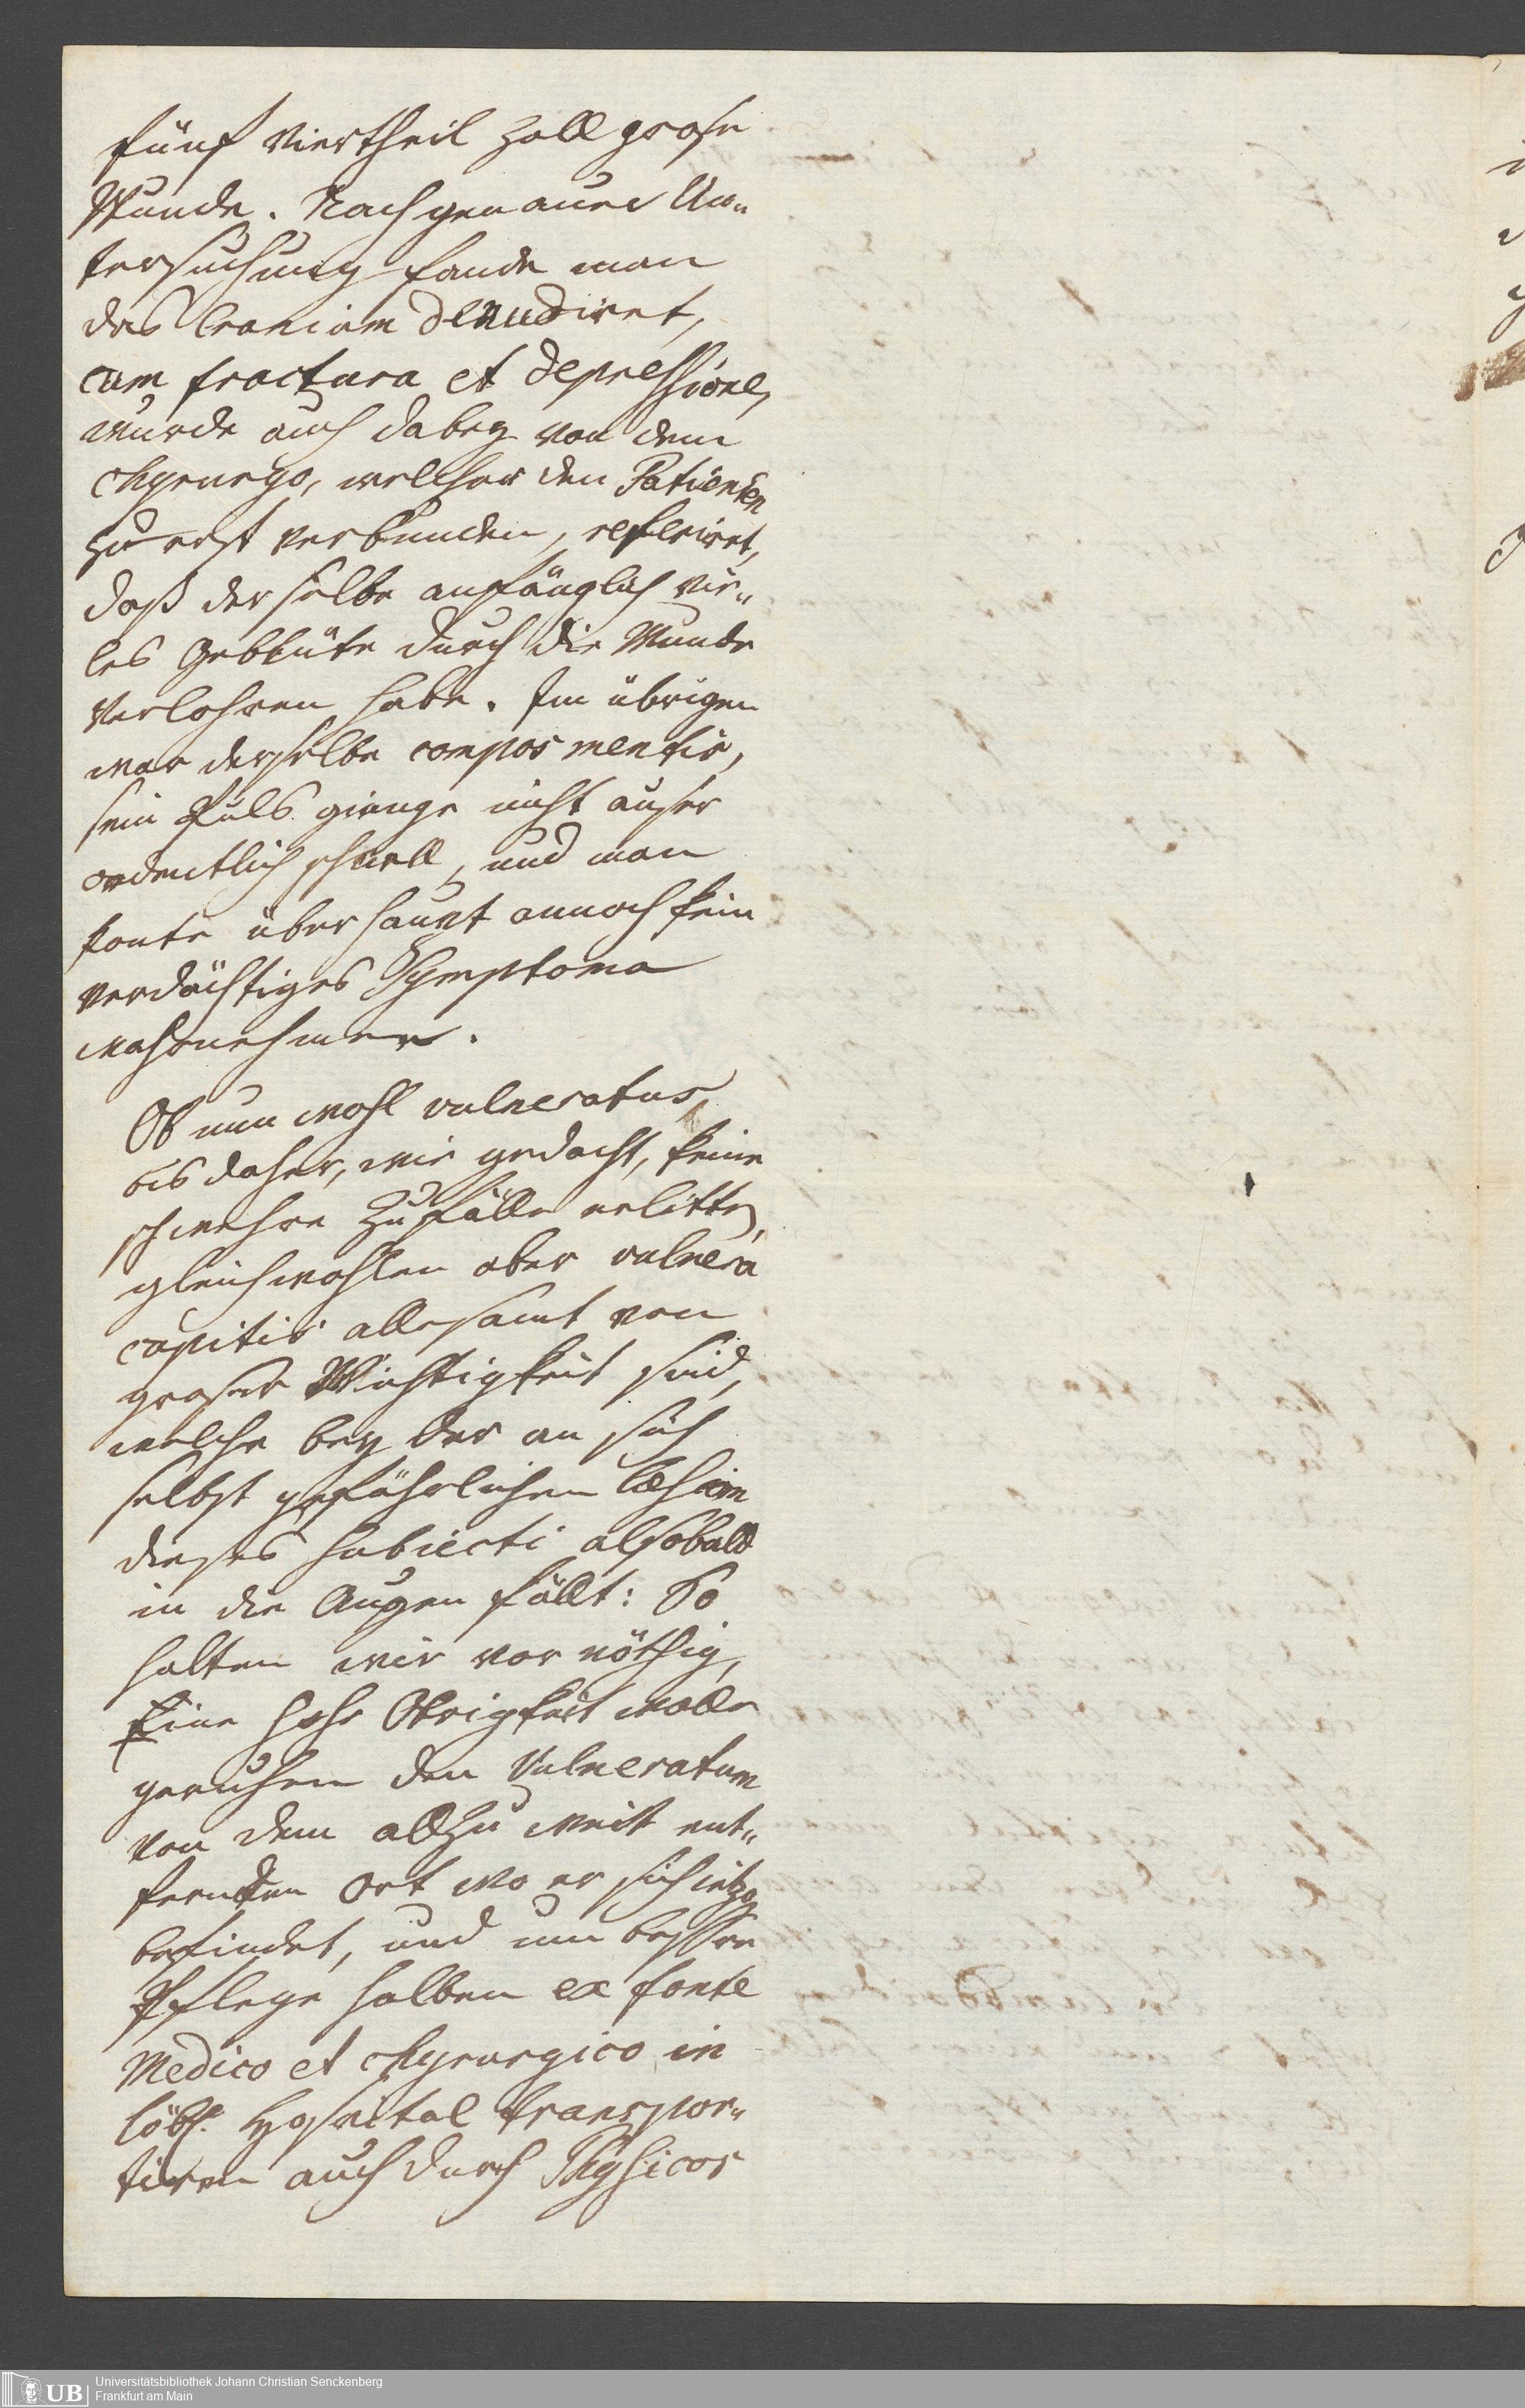 fünf Viertheil Zoll grose
Wunde. Nach genauer Un„
tersuchung fande man
das Cranium denudiret,
cum fractura et depressione,
wurde auch dabey von dem
Chyrurgo, welcher den Patienten
zu erst verbunden, referiret,
daß der selbe anfänglich vie„
les Geblüte durch die Wunde
verlohren habe. Im übrigen
war derselbe compos mentis,
sein Puls gienge nicht auser
ordentlich schnell, und man
konte überhaupt annoch kein
verdächtiges Symptoma
wahrnehmen.
Ob nun wohl vulneratus,
bis daher, wie gedacht, keine
schwehre Zufälle erlitten,
gleichwohlen aber vulnera
capitis allesamt von
groser Wichtigkeit sind,
welche bey der an sich
selbst gefährlichen læsion
dieses subiecti alsobald
in die Augen fällt: So
halten wir vor nöthig,
Eine Hohe Obrigkeit wolle
geruhen den Vulneratum
von dem allzu weit ent„
fernden Ort wo er sich ietzo
befindet, und um bessre
Pflege halben ex fonte
Medico et Chyrurgico in
löbl. Hospital transpor„
tiren auch durch Physicos
Universitätsbibliothek Johann Christian Senckenberg
Frankfurt am Main
UB